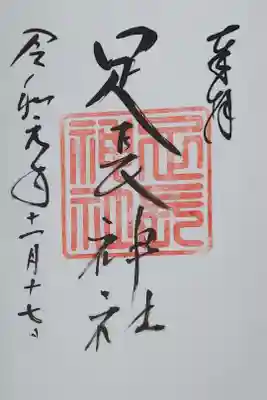 奉拝
足長神社
足長神社
令和元年十一月十七日